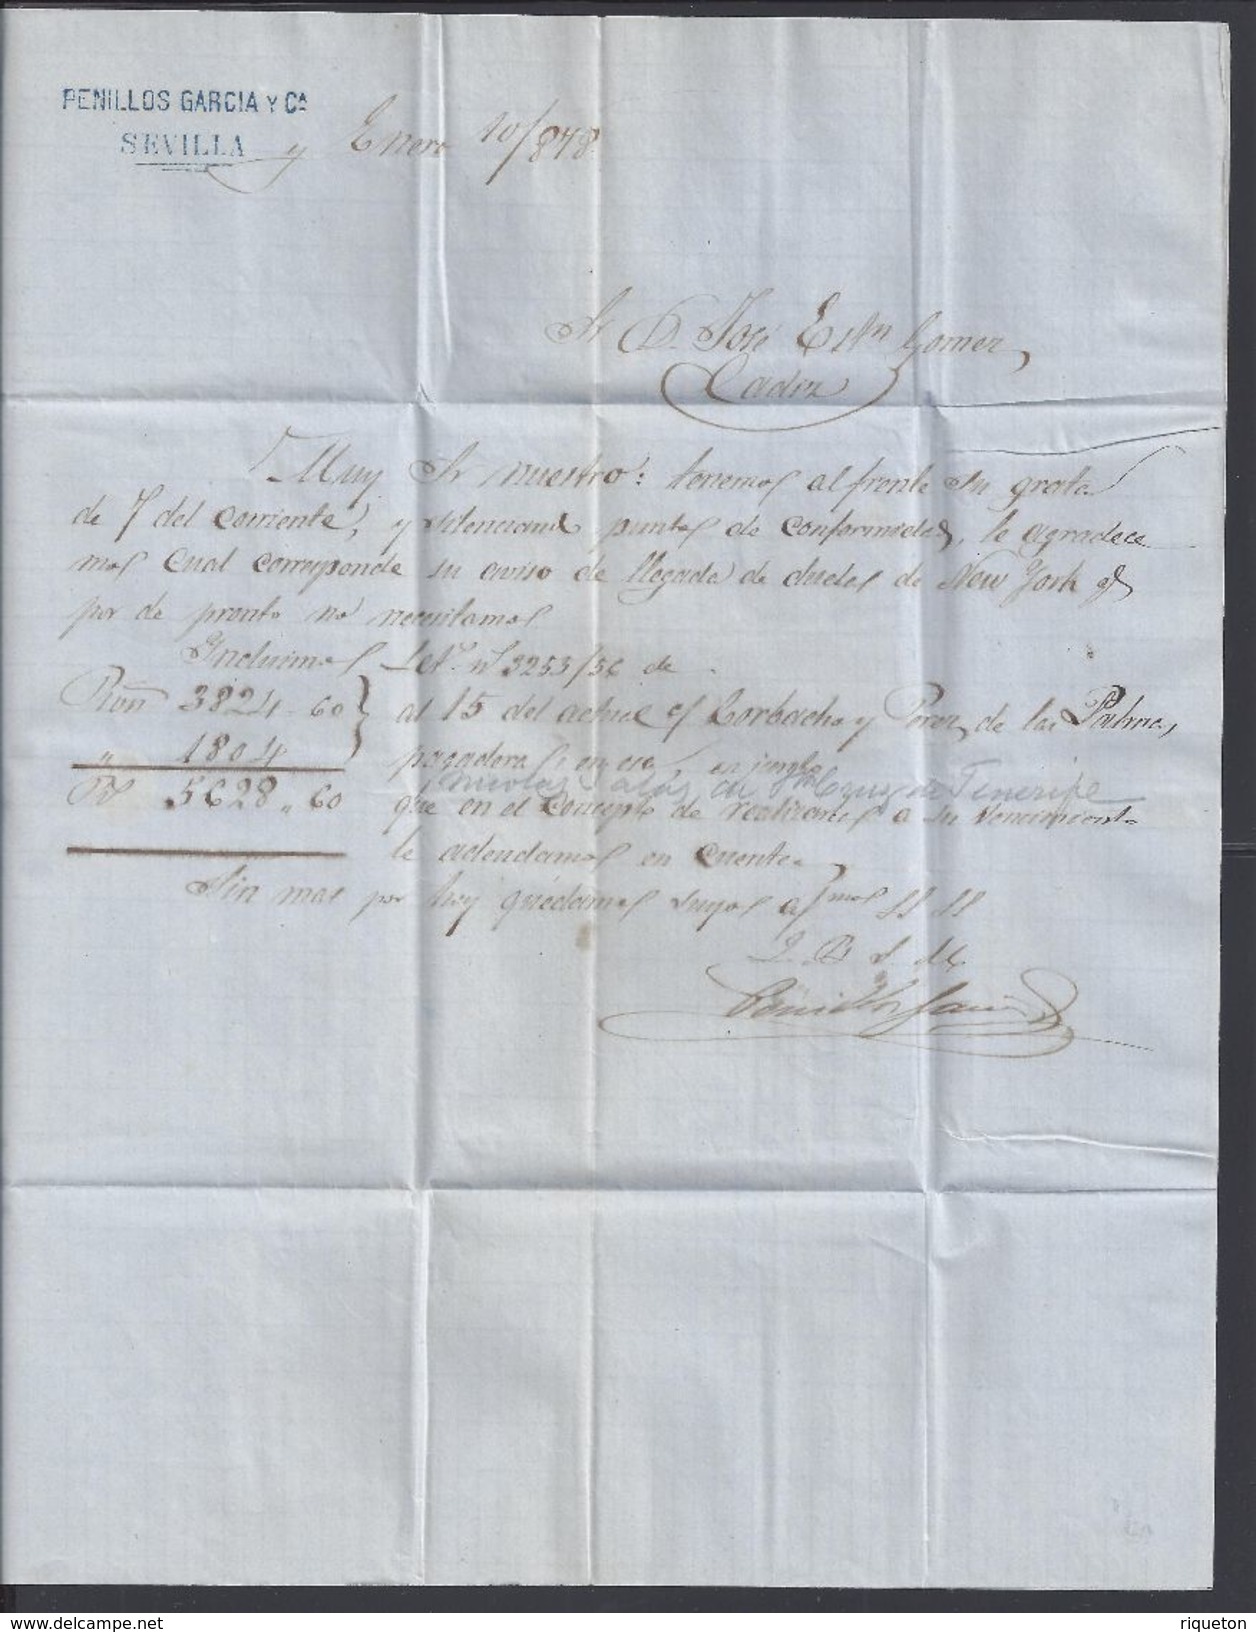 PENILLOS GARCIA Y Cª
SEVILLA y Enero 10/848
Sr D. José Estn Gomez
Cadiz
Muy Sr nuestro: tenemos al frente su grata
de 7 del corriente, y silenciand puntos de conformidad, le agradece
mos cual corresponde su aviso de llegada de duelas de New York qe
por de pronto no necesitamos
Incluimos Let.s nº 3253/56 de
Rvon 3824-60 al 15 del actual c/ Corbacho y Perez de las Palmas,
" 1804 pagaderas en esa en junto
Nicolas Salas en Sta Cruz de Tenerife
Rv 5628.,60 que en el concepto de realizarlas a su vencimiento
le adeudamos en cuenta
Sin mas por hoy quedamos suyos afmos SS SS
Q. B. S. M.
Penillos Garcia
riqueton